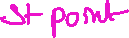 St point